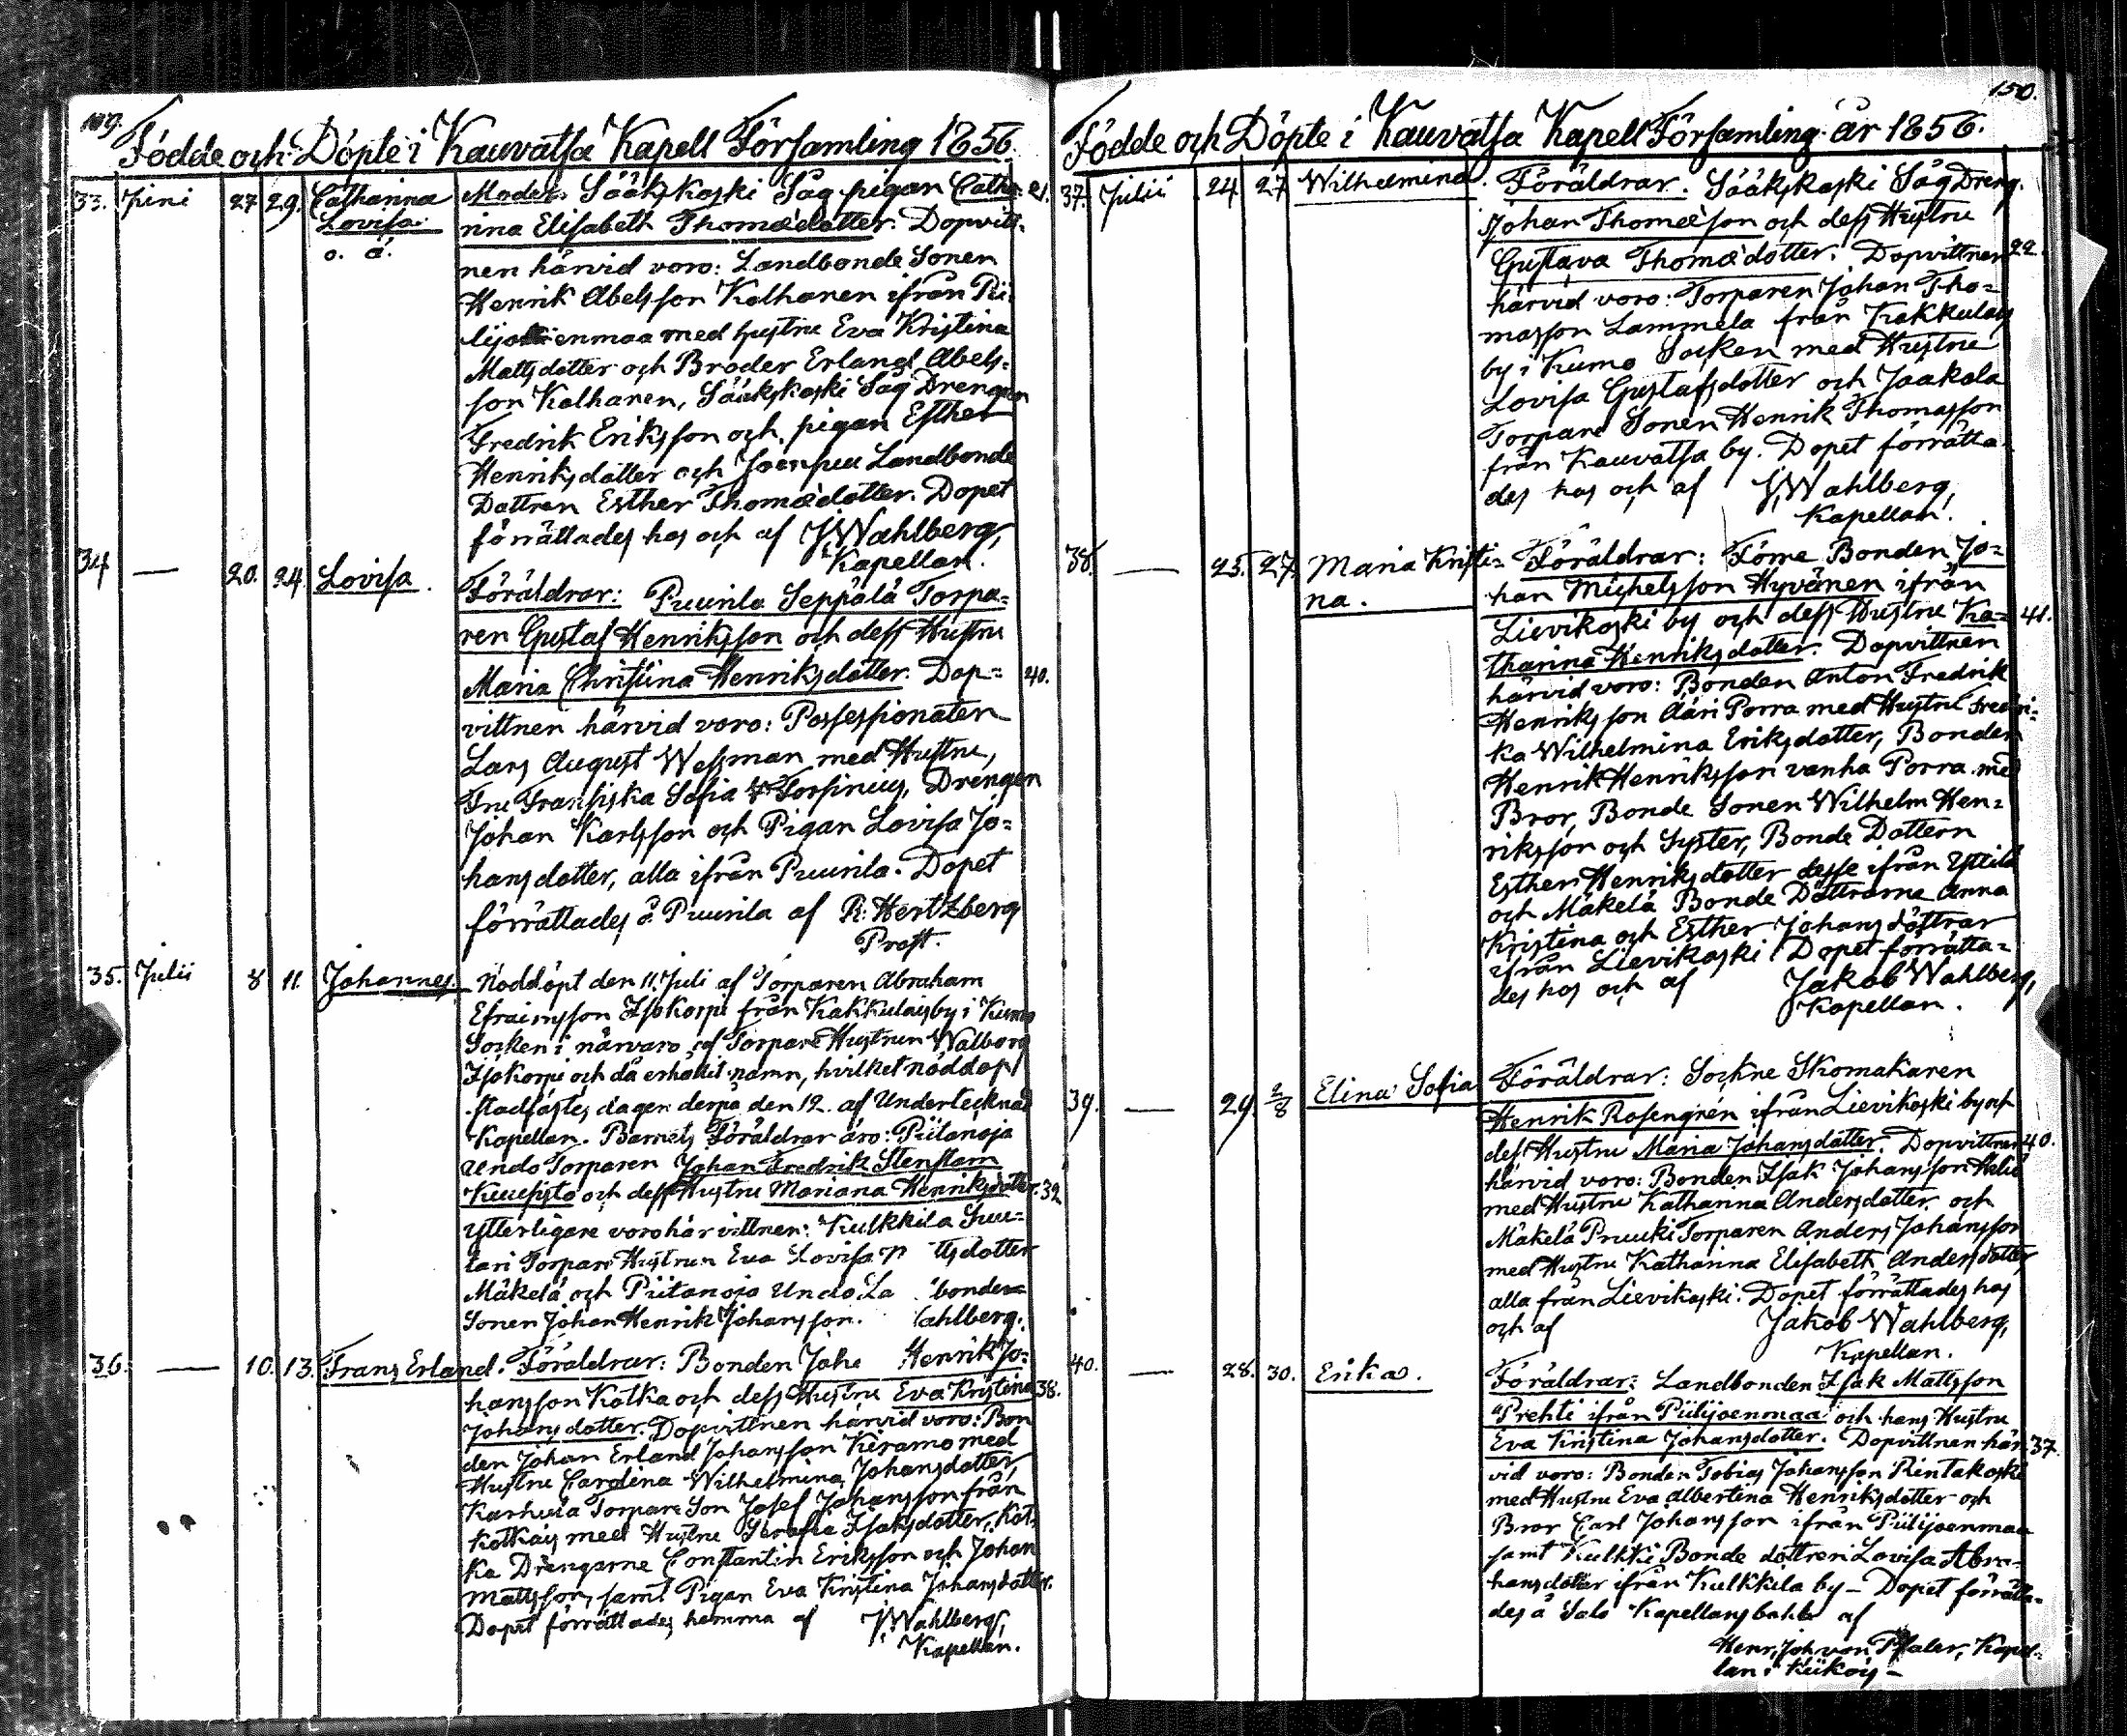 149.
Födde och Döpte i Kauvatsa Kapell Församling 1856.
33. Juni 27 29. Catharina Moder: Sääkskoski Såg pigan Catha- 21.
Lovisa rina Elisabeth Thomædotter. Dopvitt-
o. ä. nen härvid voro: Landbonde Sonen
Henrik Abelsson Kolhanen ifrån Pii-
lijoenmaa med hustru Eva Kristina
Mattsdotter och Broder Erland Abels-
son Kolhanen, Sääkskoski Såg Drengen
Fredrik Eriksson och pigan Esther
Henriksdotter och Joenpuu Landbonde
Dottren Esther Thomædotter. Dopet
förrättades hos och af J. Wahlberg,
Kapellan.
34 — 20. 24. Lovisa. Föräldrar: Puurila Seppälä Torpa-
ren Gustaf Henriksson och dess Hustru
Maria Christina Henriksdotter. Dop- 40.
vittnen härvid voro: Possessionaten
Lars August Wessman med Hustru,
Fru Fransiska Sofia Forsinius, Drengen
Johan Karlsson och Pigan Lovisa Jo-
hansdotter, alla ifrån Puurila. Dopet
förrättades å Puurila af R. Hertzberg
Prost.
35. Julii 8 11. Johannes. Nöddöpt den 11. Juli af Torparen Abraham
Efraimsson Isokorpi från Kakkulais by i Kumo
Socken i närvaro af Torpare Hustrun Walborg
Isokorpi och då erhållit namn, hvilket nöddop
stadfästes dagen derpå den 12. af Undertecknad
Kapellan. Barnets Föräldrar äro: Piitanoja
Undo Torparen Johan Fredrik Stenstam
Kuusisto och dess Hustru Mariana Henriksdotter. 32
Ytterligare voro här vittnen: Kulkkila Suu-
tari Torpare Hustrun Eva Lovisa tsdotter
Mäkelä och Piitanoja Undo La bonde
Sonen Johan Henrik Johansson. ahlberg.
36. — 10. 13. Frans Erland. Föräldrar: Bonden Joha Henrik Jo-
hansson Kotka och dess Hustru Eva Kristina 38.
Johansdotter. Dopvittnen härvid voro: Bon
den Johan Erland Johansson Keramo med
Hustru Carolina Wilhelmina Johansdotter,
Karhula Torpare Son Josef Johansson från
Kotkais med Hustru Serafia Isaksdotter, Kot-
ka Drengarne Constantin Eriksson och Johan
Mattsson, samt Pigan Eva Kristina Johansdotter.
Dopet förrättades hemma af J. Wahlberg,
Kapellan.
150.
Födde och Döpte i Kauvatsa Kapell Församling år 1856.
37. Julii 24 27 Wilhelmina. Föräldrar: Sääkskoski Såg Dreng.
Johan Thomæson och dess Hustru
Gustava Thomædotter. Dopvittnen 22.
härvid voro: Torparen Johan Tho-
masson Lammela från Kakkulais
by i Kumo Socken med Hustru
Lovisa Gustafsdotter och Jaakola
Torpare Sonen Henrik Thomasson
från Kauvatsa by. Dopet förrätta-
des hos och af J. Wahlberg,
Kapellan.
38. — 25. 27. Maria Kristi- Föräldrar: Före Bonden Jo-
na. han Michelsson Hyvänen ifrån
Lievikoski by och dess Hustru Ka- 41.
tharina Henriksdotter. Dopvittnen
härvid voro: Bonden Anton Fredrik
Henriksson Ääri Porra med Hustru Fredri-
ka Wilhelmina Eriksdotter, Bonden
Henrik Henriksson vanha Porra med
Bror, Bonde Sonen Wilhelm Hen-
riksson och Syster, Bonde Dottern
Esther Henriksdotter desse ifrån Yttilä
och Mäkelä Bonde Döttrarne Anna
Kristina och Esther Johansdöttrar
ifrån Lievikoski. Dopet förrätta-
des hos och af Jakob Wahlberg,
Kapellan.
39. — 29. 2/8 Elina Sofia Föräldrar: Sockne Skomakaren
Henrik Rosengrén ifrån Lievikoski by och
dess Hustru Maria Johansdotter. Dopvittnen 40.
härvid voro: Bonden Isak Johansson Heliö
med Hustru Katharina Andersdotter och
Mäkelä Pruuki Torparen Anders Johansson
med Hustru Katharina Elisabeth Andersdotter,
alla från Lievikoski. Dopet förrättades hos
och af Jakob Wahlberg,
Kapellan.
40. — 28. 30. Erika. Föräldrar: Landbonden Isak Mattsson
Prehti ifrån Piilijoenmaa och hans Hustru
Eva Kristina Johansdotter. Dopvittnen här- 37
vid voro: Bonden Tobias Johansson Rintakoski
med Hustru Eva Albertina Henriksdotter och
Bror Carl Johansson ifrån Piilijoenmaa
samt Kulkki Bonde dottren Lovisa Abra-
hansdotter ifrån Kulkkila by – Dopet förrätta-
des å Salo Kapellansbohl af
Henr. Joh. von Pfaler, Kapel-
lan i Kiikois –